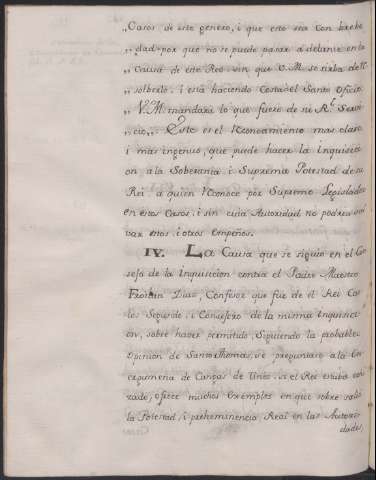 „ Casos de este genero, i que esto sea con breve
„ dad, por que no se puede pasar adelante en la
„ Causa de este Reo sin que V. M. se sirba de re
„ solberlo, i està haciendo Costas el Santo Oficio.
„ V. M. mandarà lo que fuere de su Rl. Servi
„ cio „ Este es el reconocimiento mas claro
i mas ingenuo, que puede hacer la Inquisici
on a la Soberania i Suprema Potestad de su
Rei a quien reconoce por Supremo Legislador
en estos Casos, i sin cuia Autoridad no podrà
en estos, i otros Empeños.
IV. La Causa que se siguio en el Con
sejo de la Inquisicion contra el Padre Maestro
Froilan Diaz, Confesor que fue de el Rei Car
los Segundo, i Consejero de la misma Inquisici
on, sobre haver permitido, siguiendo la probable
opinion de Santo Thomas, se preguntase a la En
ergumena de Cangas de Tineo, si el Rei estaba echi
zado, ofrece muchos exemplos en que sobre salio
la Potestad, i prehominencia Real en las Autori
dades,